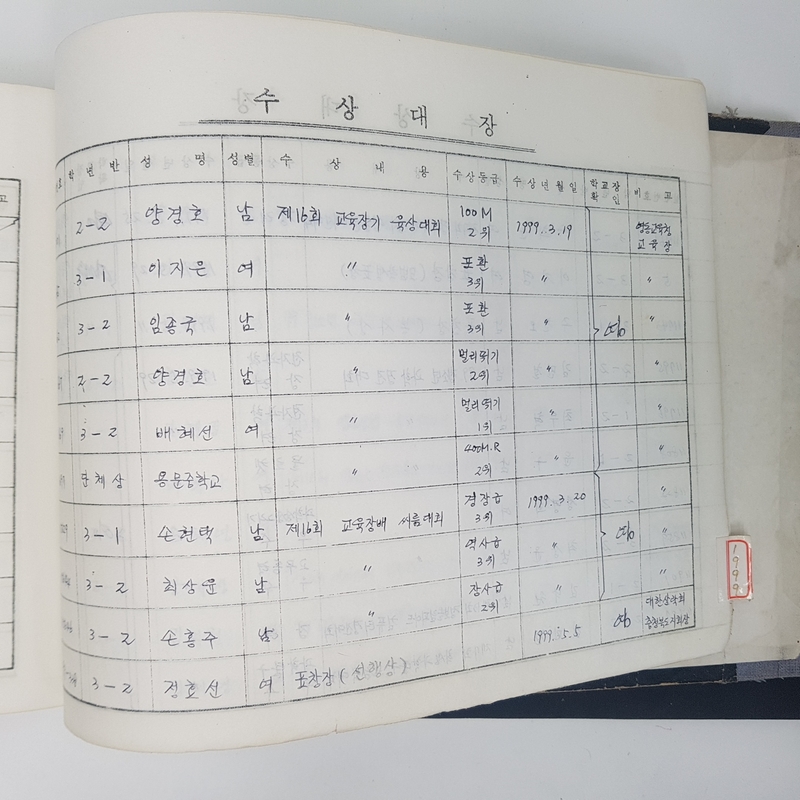 수 상 대 장
학년반 성 명 성별 수 상 내 용 수상등급 수상년월일 학교장 확 인 비 고
2-2 양경호 남 제16회 교육장기 육상대회 100M 2위 1999. 3. 19 영동교육청 교육장
3-1 이지은 여 〃 포환 3위 〃 〃
3-2 임종국 남 〃 포환 3위 〃 〃
2-2 양경호 남 〃 멀리뛰기 2위 〃 〃
3-2 배혜선 여 〃 멀리뛰기 1위 〃 〃
단체상 용문중학교 〃 400M.R 2위 〃 〃
3-1 손현택 남 제16회 교육장배 씨름대회 경장급 3위 1999. 3. 20 〃
3-2 최상윤 남 〃 역사급 3위 〃 〃
3-2 손흥주 남 〃 장사급 2위 〃 〃
3-2 정호선 여 표창장(선행상) 1999. 5. 5 대한산악회 충청북도지회장
1999